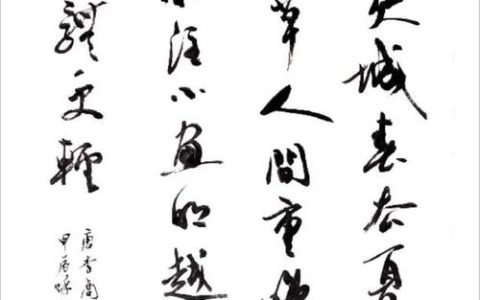 城春去夏
草人間重
注小窗明越
體更輕
唐李商
甲辰